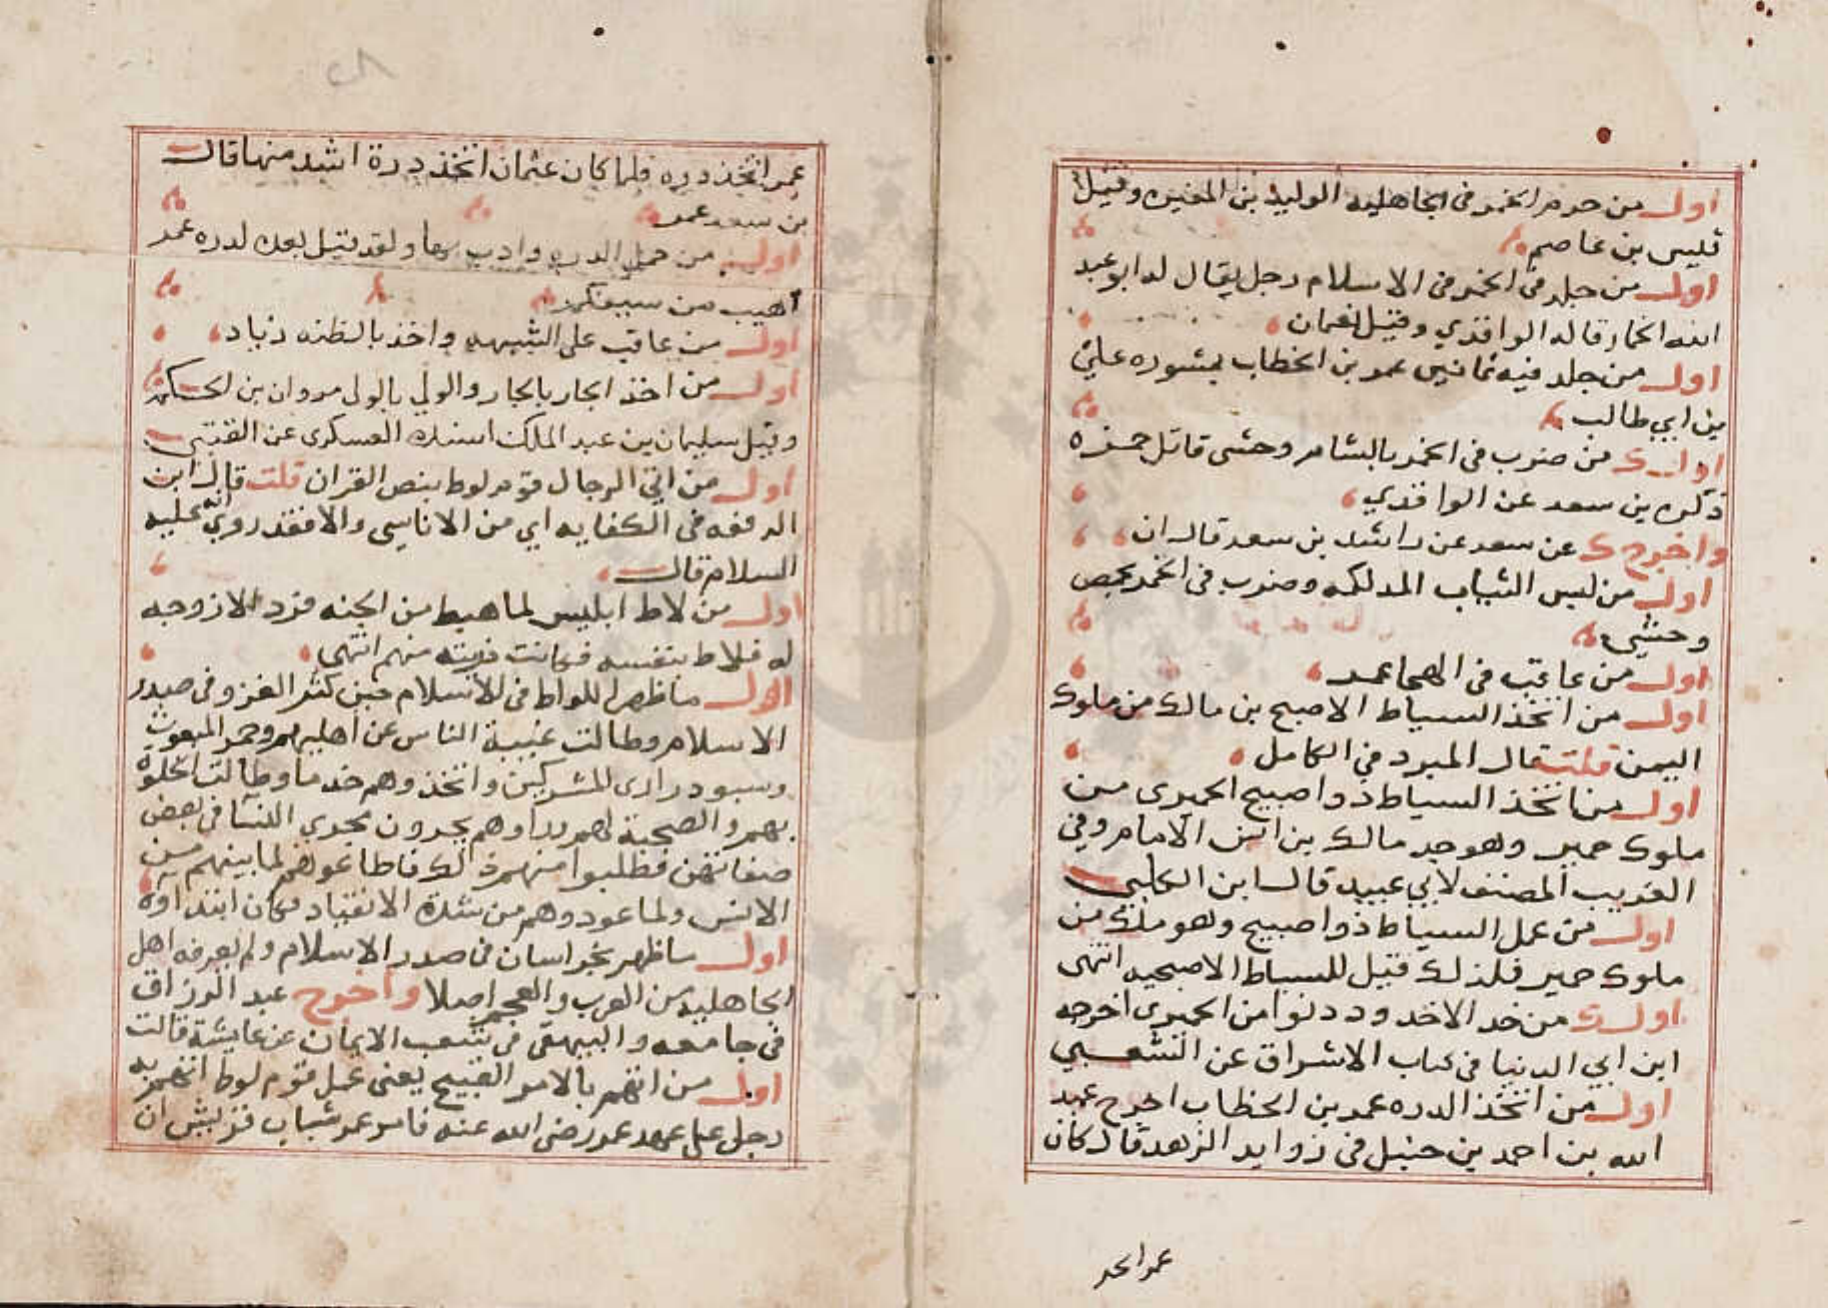 اول من حرم الخمر فى الجاهليه الوليد بن المغيره وقيل
قليس بن عاصم
اول من جلد فى الخمر فى الاسلام رجل يقال له ابو عبد
الله الخمار قاله الواقدي وقيل نعمان
اول من جلد فيه ثمانين عمر بن الخطاب بمشوره علي
بن ابي طالب
اول من ضرب فى الخمر بالشام وحشى قاتل حمزه
ذكره بن سعد عن الواقدي
واخرج عن سعد عن راشد بن سعد قال ان
اول من لبس الثياب المدلكه وضرب فى الخمر بحمص
وحشي
اول من عاقب فى الهجا عمر
اول من اتخذ السياط الاصبح بن مالك من ملوك
اليمن قلت قال المبرد في الكامل
اول من اتخذ السياط ذو اصبح الحميرى من
ملوك حمير وهو جد مالك بن انس الامام وفي
الغريب المصنف لابي عبيد قال ابن الكلبي
اول من عمل السياط ذو اصبح وهو ملك من
ملوك حمير فلذلك قيل للسياط الاصبحيه انتهى
اول من خد الاخدود دنوا من الحميرى اخرجه
ابن ابي الدنيا فى كتاب الاشراق عن الشعبي
اول من اتخذ الدره عمر بن الخطاب اخرج عبد
الله بن احمد بن حنبل فى زوايد الزهد قال كان
عمر اتخذ
عمر اتخذ دره فلما كان عثمان اتخذ درة اشد منها قال
بن سعد عمر
اول من حمل الدره وادب بها ولقد قيل بعده لدره عمر
اهيب من سيفكم
اول من عاقب على الشبهه واخذ بالظنه زياد
اول من اخذ الجار بالجار والولي بالولى مروان بن الحكم
وقيل سليمان بن عبد الملك اسنده العسكرى عن القتبي
اول من اتى الرجال قوم لوط بنص القران قلت قال ابن
الرفعه فى الكفايه اي من الاناسى والا فقد روي انه عليه
السلام قال
اول من لاط ابليس لما هبط من الجنه فرد الا زوجه
له فلاط بنفسه فكانت ذريته منهم انتهى
اول ما ظهر اللواط فى الاسلام حين كثر الغزو فى صدر
الاسلام وطالت غيبة الناس عن اهليهم وحمر البعوث
وسبو دراري المشركين واتخذوهم خدما وطالت الخلوه
بهم والصحبة لهم وراوهم يجرون مجرى النسا فى بعض
صفاتهن فطلبوا منهم ذلك فاطاعوهم لما بينهم من
الانس ولما عودوهم من شدة الانقياد فكان ابتداوه
اول ما ظهر بخراسان فى صدر الاسلام ولم يعرفه اهل
الجاهليه من العرب والعجم اصلا واخرج عبد الرزاق
فى جامعه والبيهقى فى شعب الايمان عن عايشة قالت
اول من اتهم بالامر القبيح يعنى عمل قوم لوط اتهم به
رجل على عهد عمر رضى الله عنه فامر عمر شباب قريش ان